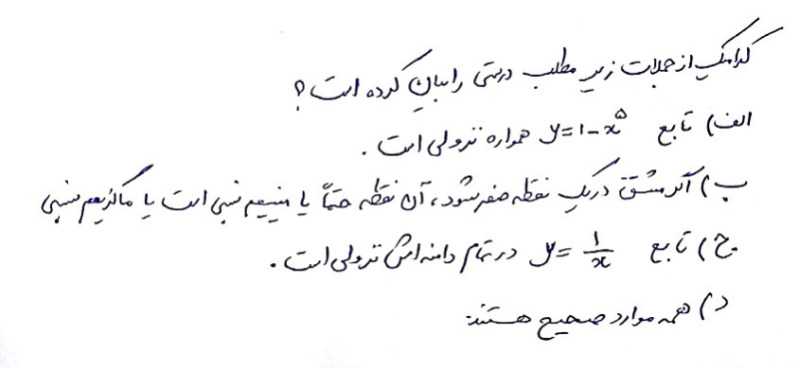 کدامیک از جملات زیر مطلب درستی را بیان کرده است؟
الف) تابع y=۱-x^۵ همواره نزولی است.
ب) اگر مشتق در یک نقطه صفر شود، آن نقطه حتماً یا مینیمم نسبی است یا ماکزیمم نسبی
ج) تابع y=1/x در تمام دامنه‌اش نزولی است.
د) همه موارد صحیح هستند